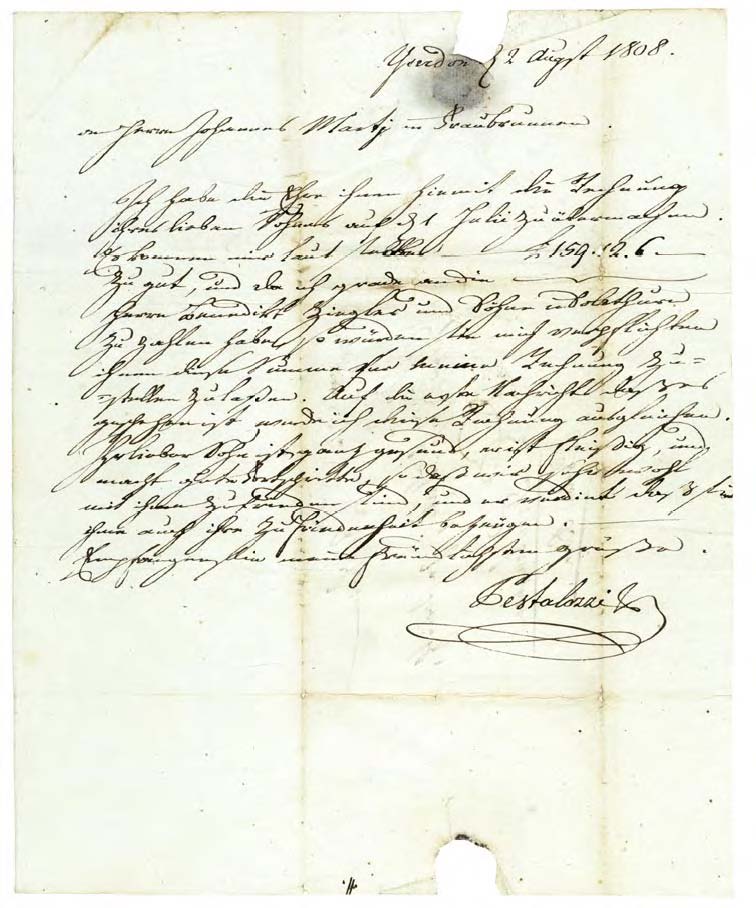 Yverdon d 2 Augst 1808.
An Herrn Johannes Marti in Fraubrunnen.
Ich habe die Ehre ihnen hiemit die Rechnung
ihres lieben Sohnes auf d 1 Julii zu übermachen.
So kommen mir laut £ 159.:2.6
zu gut, und da ich grade an die
Herrn Benedikt Ziegler und Söhne in Solothurn
zu zahlen habe, so würden sie mich verpflichten
ihnen diese Summe für meine Rechnung zu-
-stellen zu laßen. Auf die erste Nachricht daß es
geschehen ist werde ich diese Rechnung ausgleichen.
Ihr lieber Sohn ist ganz gesund, er ist fleißig, und
macht gute Fortschritte, so daß wir sehr wohl
mit ihm zufrieden sind, und er verdient daß sie
ihm auch ihre Zufriedenheit bezeugen.
Empfangen sie meine freundlichsten grüße.
Pestalozzi